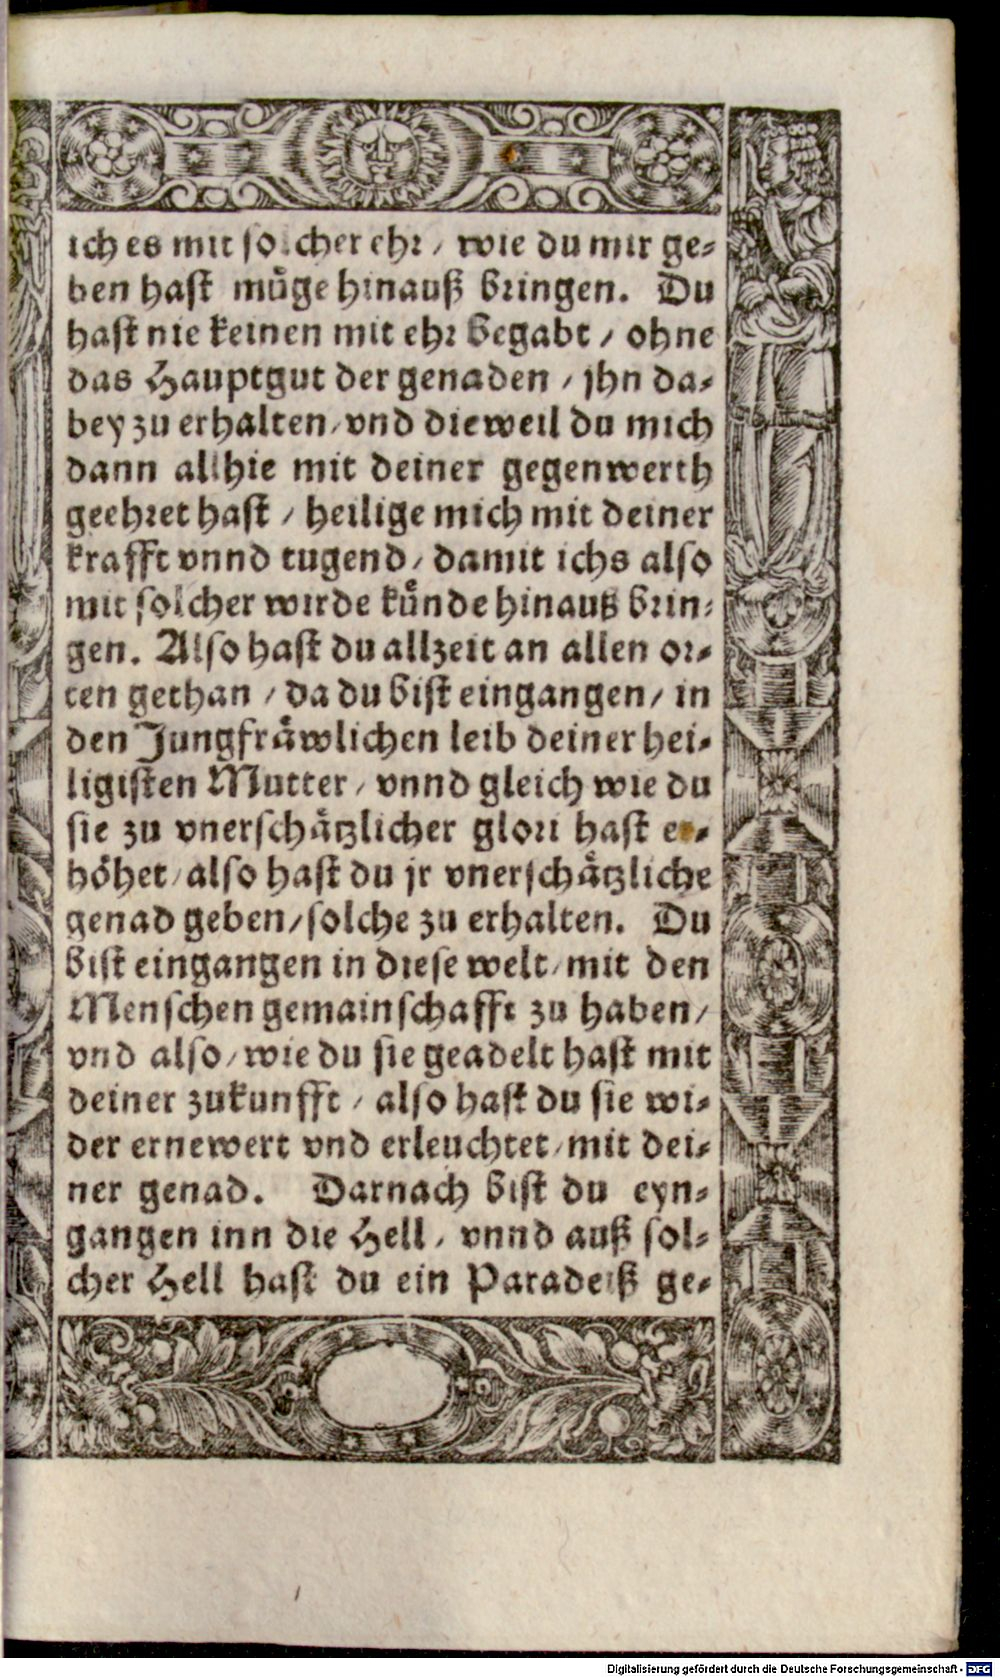 ich es mit solcher ehr / wie du mir ge-
ben hast müge hinauß bringen. Du
hast nie keinen mit ehr begabt / ohne
das Hauptgut der genaden / jhn da-
bey zu erhalten / vnd dieweil du mich
dann allhie mit deiner gegenwerth
geehret hast / heilige mich mit deiner
krafft vnnd tugend / damit ichs also
mit solcher wirde künde hinauß brin-
gen. Also hast du allzeit an allen or-
ten gethan / da du bist eingangen / in
den Jungfräwlichen leib deiner hei-
ligisten Mutter / vnnd gleich wie du
sie zu vnerschätzlicher glori hast er-
höhet / also hast du jr vnerschätzliche
genad geben / solche zu erhalten. Du
bist eingangen in diese welt / mit den
Menschen gemainschafft zu haben /
vnd also / wie du sie geadelt hast mit
deiner zukunfft / also hast du sie wi-
der ernewert vnd erleuchtet / mit dei-
ner genad. Darnach bist du eyn-
gangen inn die Hell / vnnd auß sol-
cher Hell hast du ein Paradeiß ge-
Digitalisierung gefördert durch die Deutsche Forschungsgemeinschaft - DFG